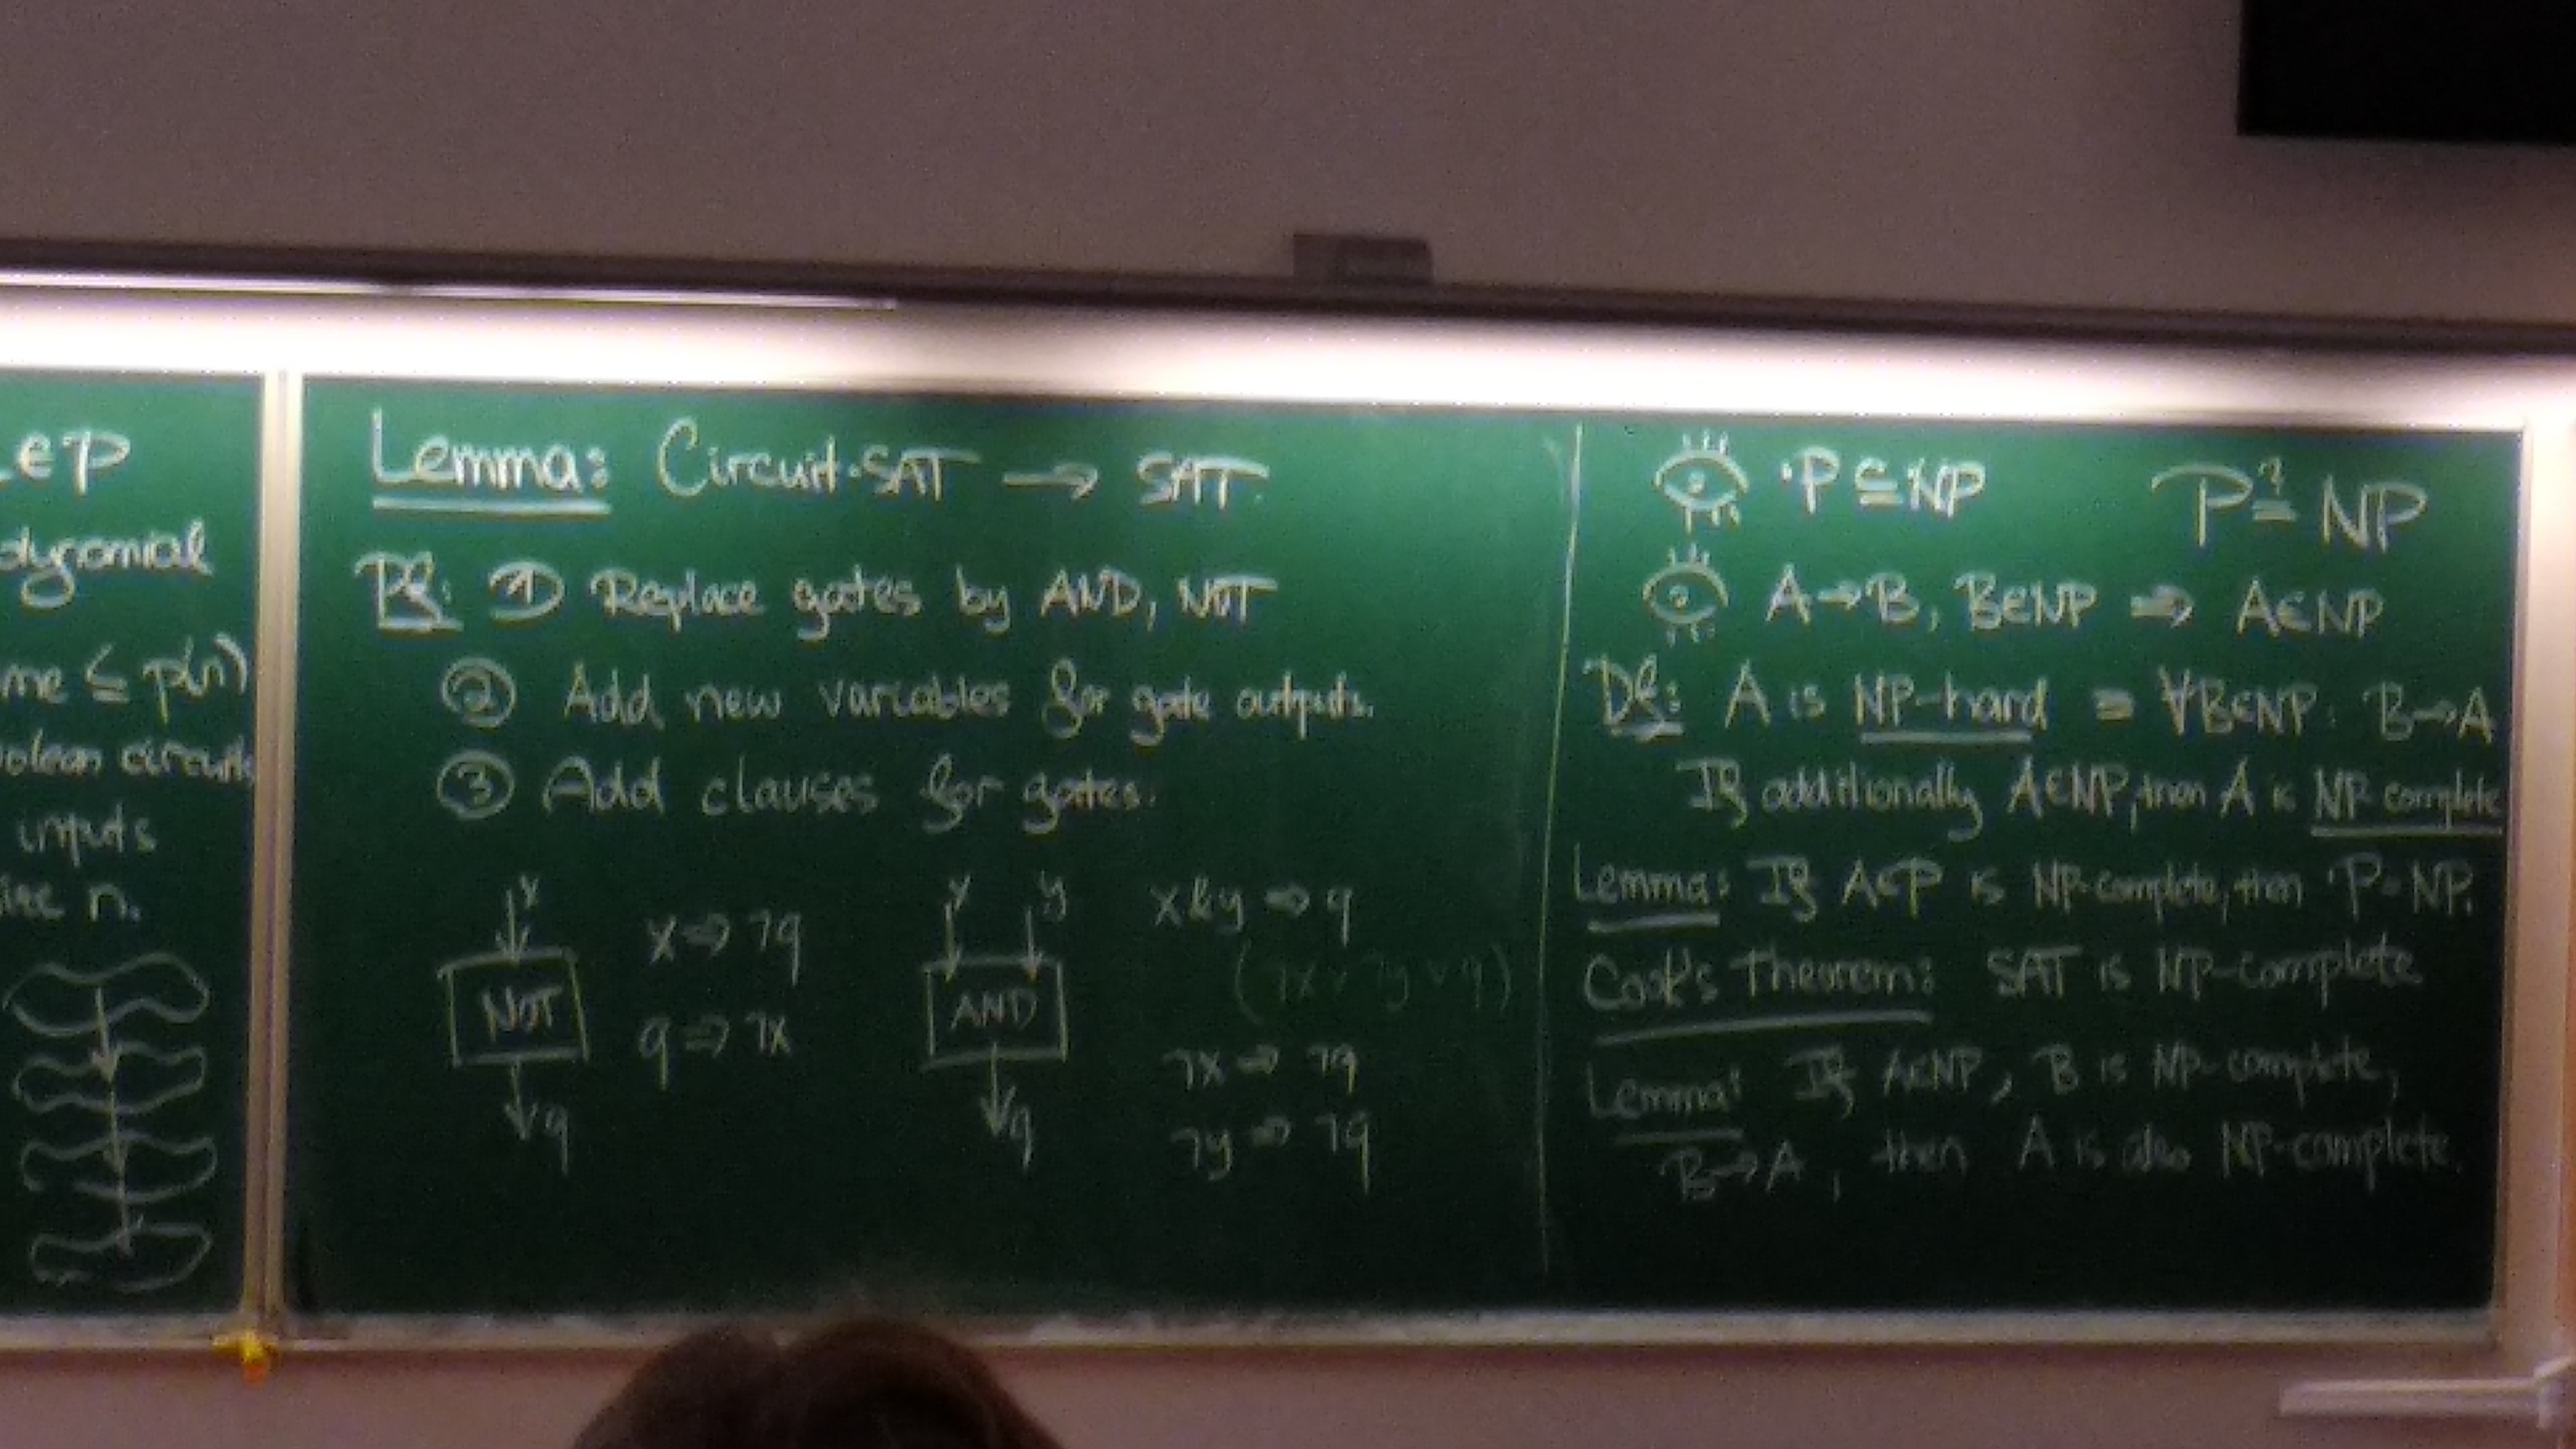 LEP
olynomial
me ≤ p(n)
oolean circuits
inputs
size n.
Lemma: Circuit-SAT → SAT.
Pf: ① Replace gates by AND, NOT
② Add new variables for gate outputs.
③ Add clauses for gates.
x
NOT
q
x ⇒ ¬q
q ⇒ ¬x
x y
AND
q
x & y ⇒ q
(¬x ∨ ¬y ∨ q)
¬x ⇒ ¬q
¬y ⇒ ¬q
P ⊆ NP P ≟ NP
A → B, B∈NP ⇒ A∈NP
Df: A is NP-hard ≡ ∀B∈NP: B → A
If additionally A∈NP, then A is NP-complete
Lemma: If A∈P is NP-complete, then P = NP.
Cook's Theorem: SAT is NP-complete
Lemma: If A∈NP, B is NP-complete,
B → A, then A is also NP-complete.